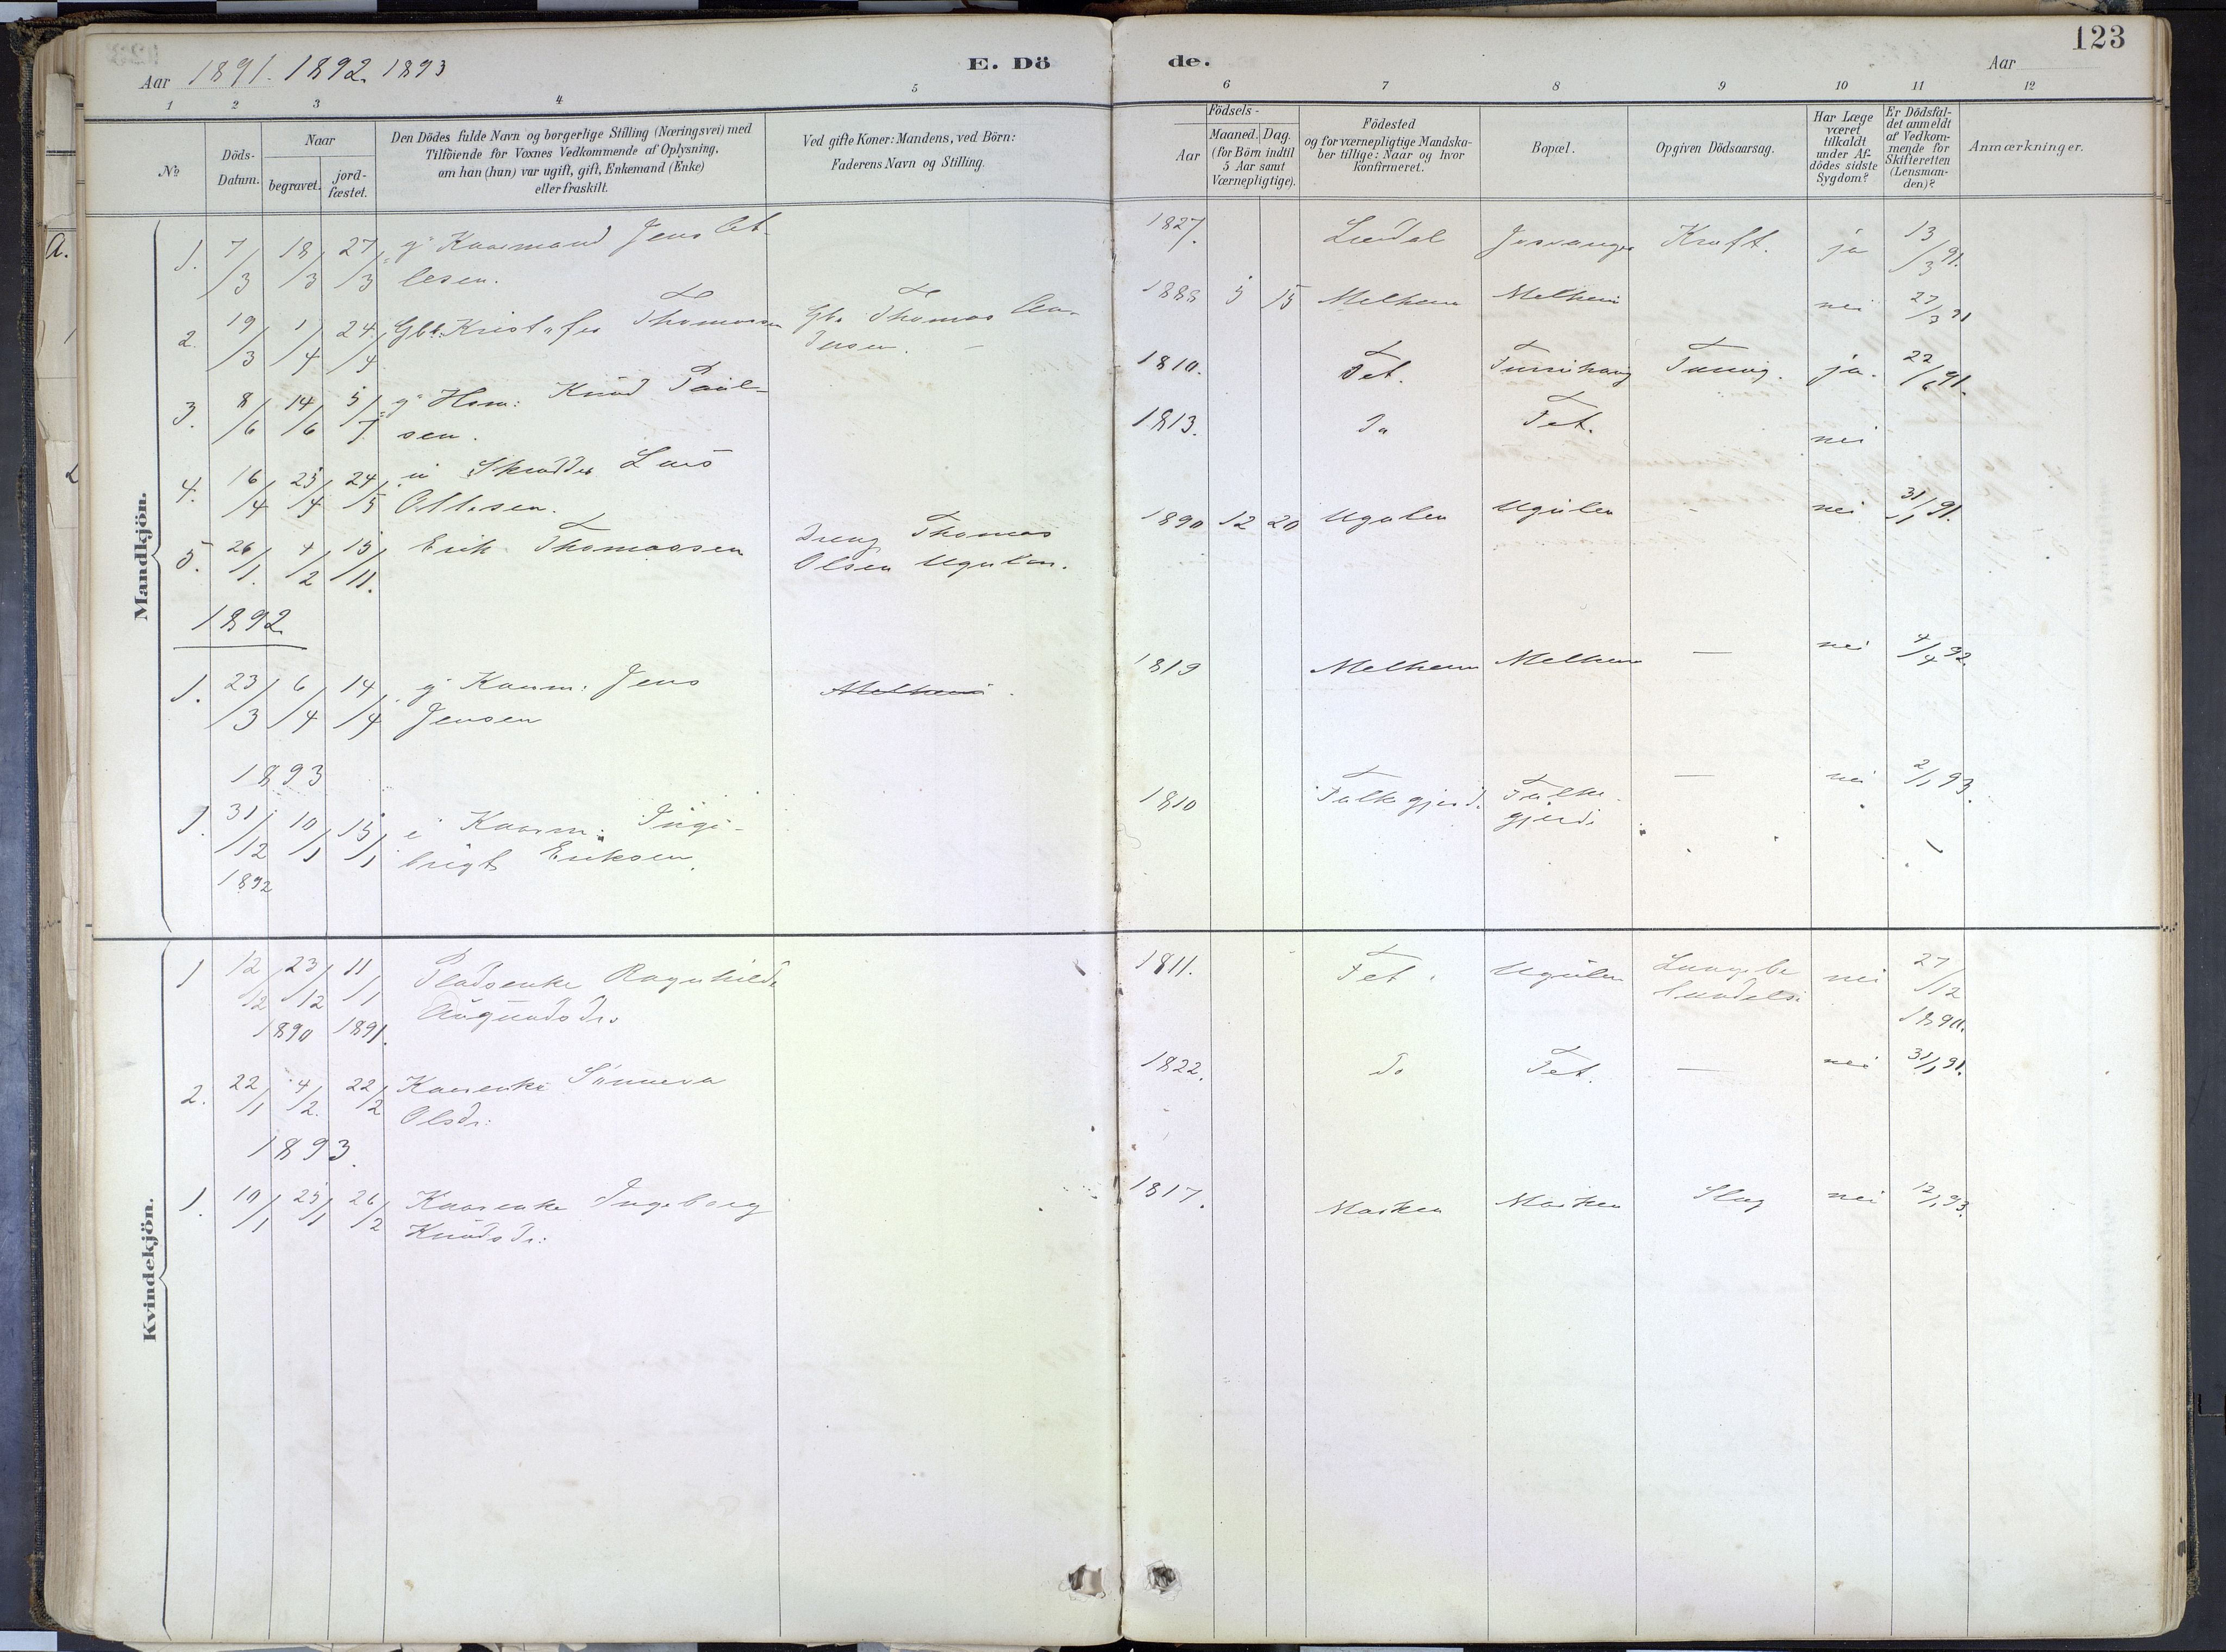 123
Aar 1891. 1892. 1893
E. Dö
de.
Aar
1 2 3 4 5 6 7 8 9 10 11 12
No
Döds-
Datum.
Naar
begravet.
jord-
fæstet.
Den Dödes fulde Navn og borgerlige Stilling (Næringsvei) med
Tilföiende for Voxnes Vedkommende af Oplysning,
om han (hun) var ugift, gift, Enkemand (Enke)
eller fraskilt.
Ved gifte Koner: Mandens, ved Börn:
Faderens Navn og Stilling.
Födsels-
Aar
Maaned. Dag.
(for Börn indtil
5 Aar samt
Værnepligtige).
Födested
og for værnepligtige Mandska-
ber tillige: Naar og hvor
konfirmeret.
Bopæl.
Opgiven Dödsaarsag.
Har Læge
været
tilkaldt
under Af-
dödes sidste
Sygdom?
Er Dödsfal-
det anmeldt
af Vedkom-
mende for
Skifteretten
(Lensman-
den)?
Anmærkninger.
Mandkjön.
1. 7/3 18/3 27/3 g Kaarmand Jens At-
lesen.
1827. Lærdal Kræft. ja 13/3 91.
2. 19/3 1/4 24/4 Gbr. Kristofer Thomassen
Gbr Thomas
1888 5 15 Melheim Melheim nei 27/3 91
3. 8/6 14/6 5/7 g Hsm: Knud Paul-
sen.
1810. Fet. Tæring. ja. 22/6 91.
4. 16/4 23/4 24/5 u Skrædder Lars
Ottesen.
1813. Do Fet. nei
5. 26/1. 4/2 15/11. Erik Thomassen
Dreng Thomas
Olsen Ugulen.
1890 12 20 Ugulen Ugulen - nei 31/1 91.
1892
1. 23/3 6/4 14/4 g Kaarm: Jens
Jensen
Melheim.
1819 Melheim Melheim — nei 4/4 92.
1893
1. 31/12 10/1 15/1 e Kaarm: Inge-
brigt Eriksen.
1892
1810 Falkegjerd. Falke-
gjerd. — nei 2/1 93.
Kvindekjön.
1 12/12 23/12 11/1 Pladsenke Ragnhild
Augundsdr.
1890 1891.
1811. Fet. Ugulen Lungebe
tændelse nei 27/12
1890.
2. 22/1 4/2. 22/2 Kaarenke Sünneva
Olsdr:
1822. Do Fet. — nei 31/1 91.
1893.
1. 10/1 25/1 26/2 Kaarenke Ingeborg
Knudsdr:
1817. Slag nei 12/1 93.